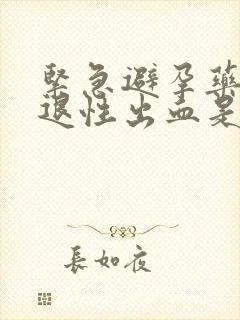 緊急避孕藥
退性出血是
長如夜